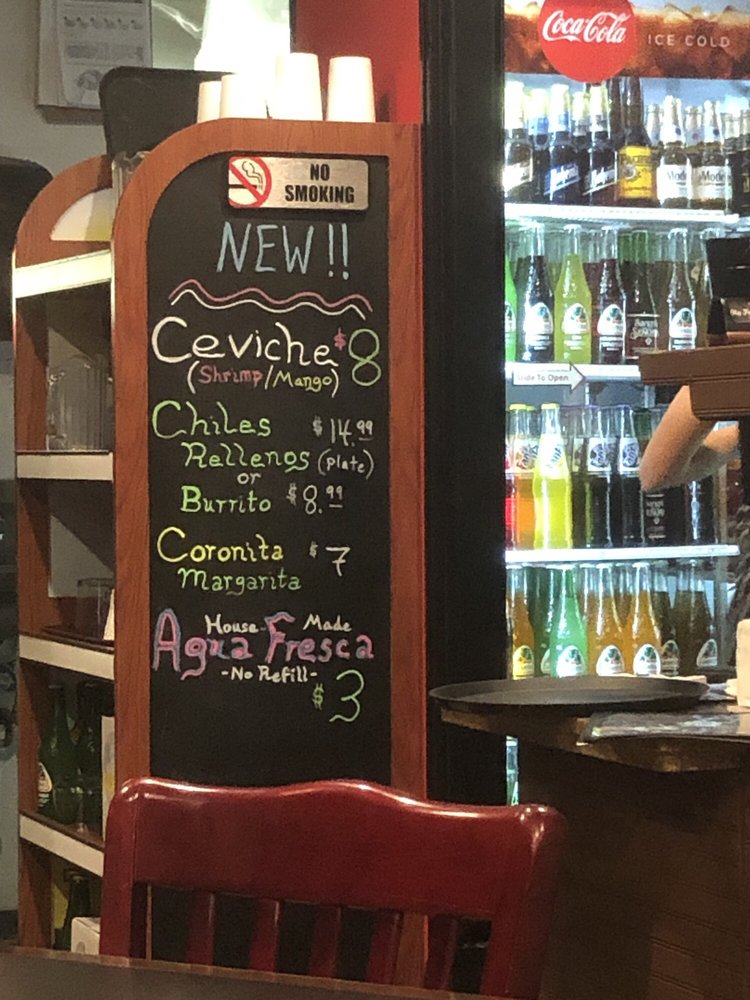 Coca-Cola
ICE COLD
NO
SMOKING
NEW!!
Ceviche $8
(Shrimp/Mango)
Chiles $14.99
Rellenos (Plate)
or
Burrito $8.99
Coronita $7
Margarita
House Made
Agua Fresca
-No Refill-
$3
Slide To Open